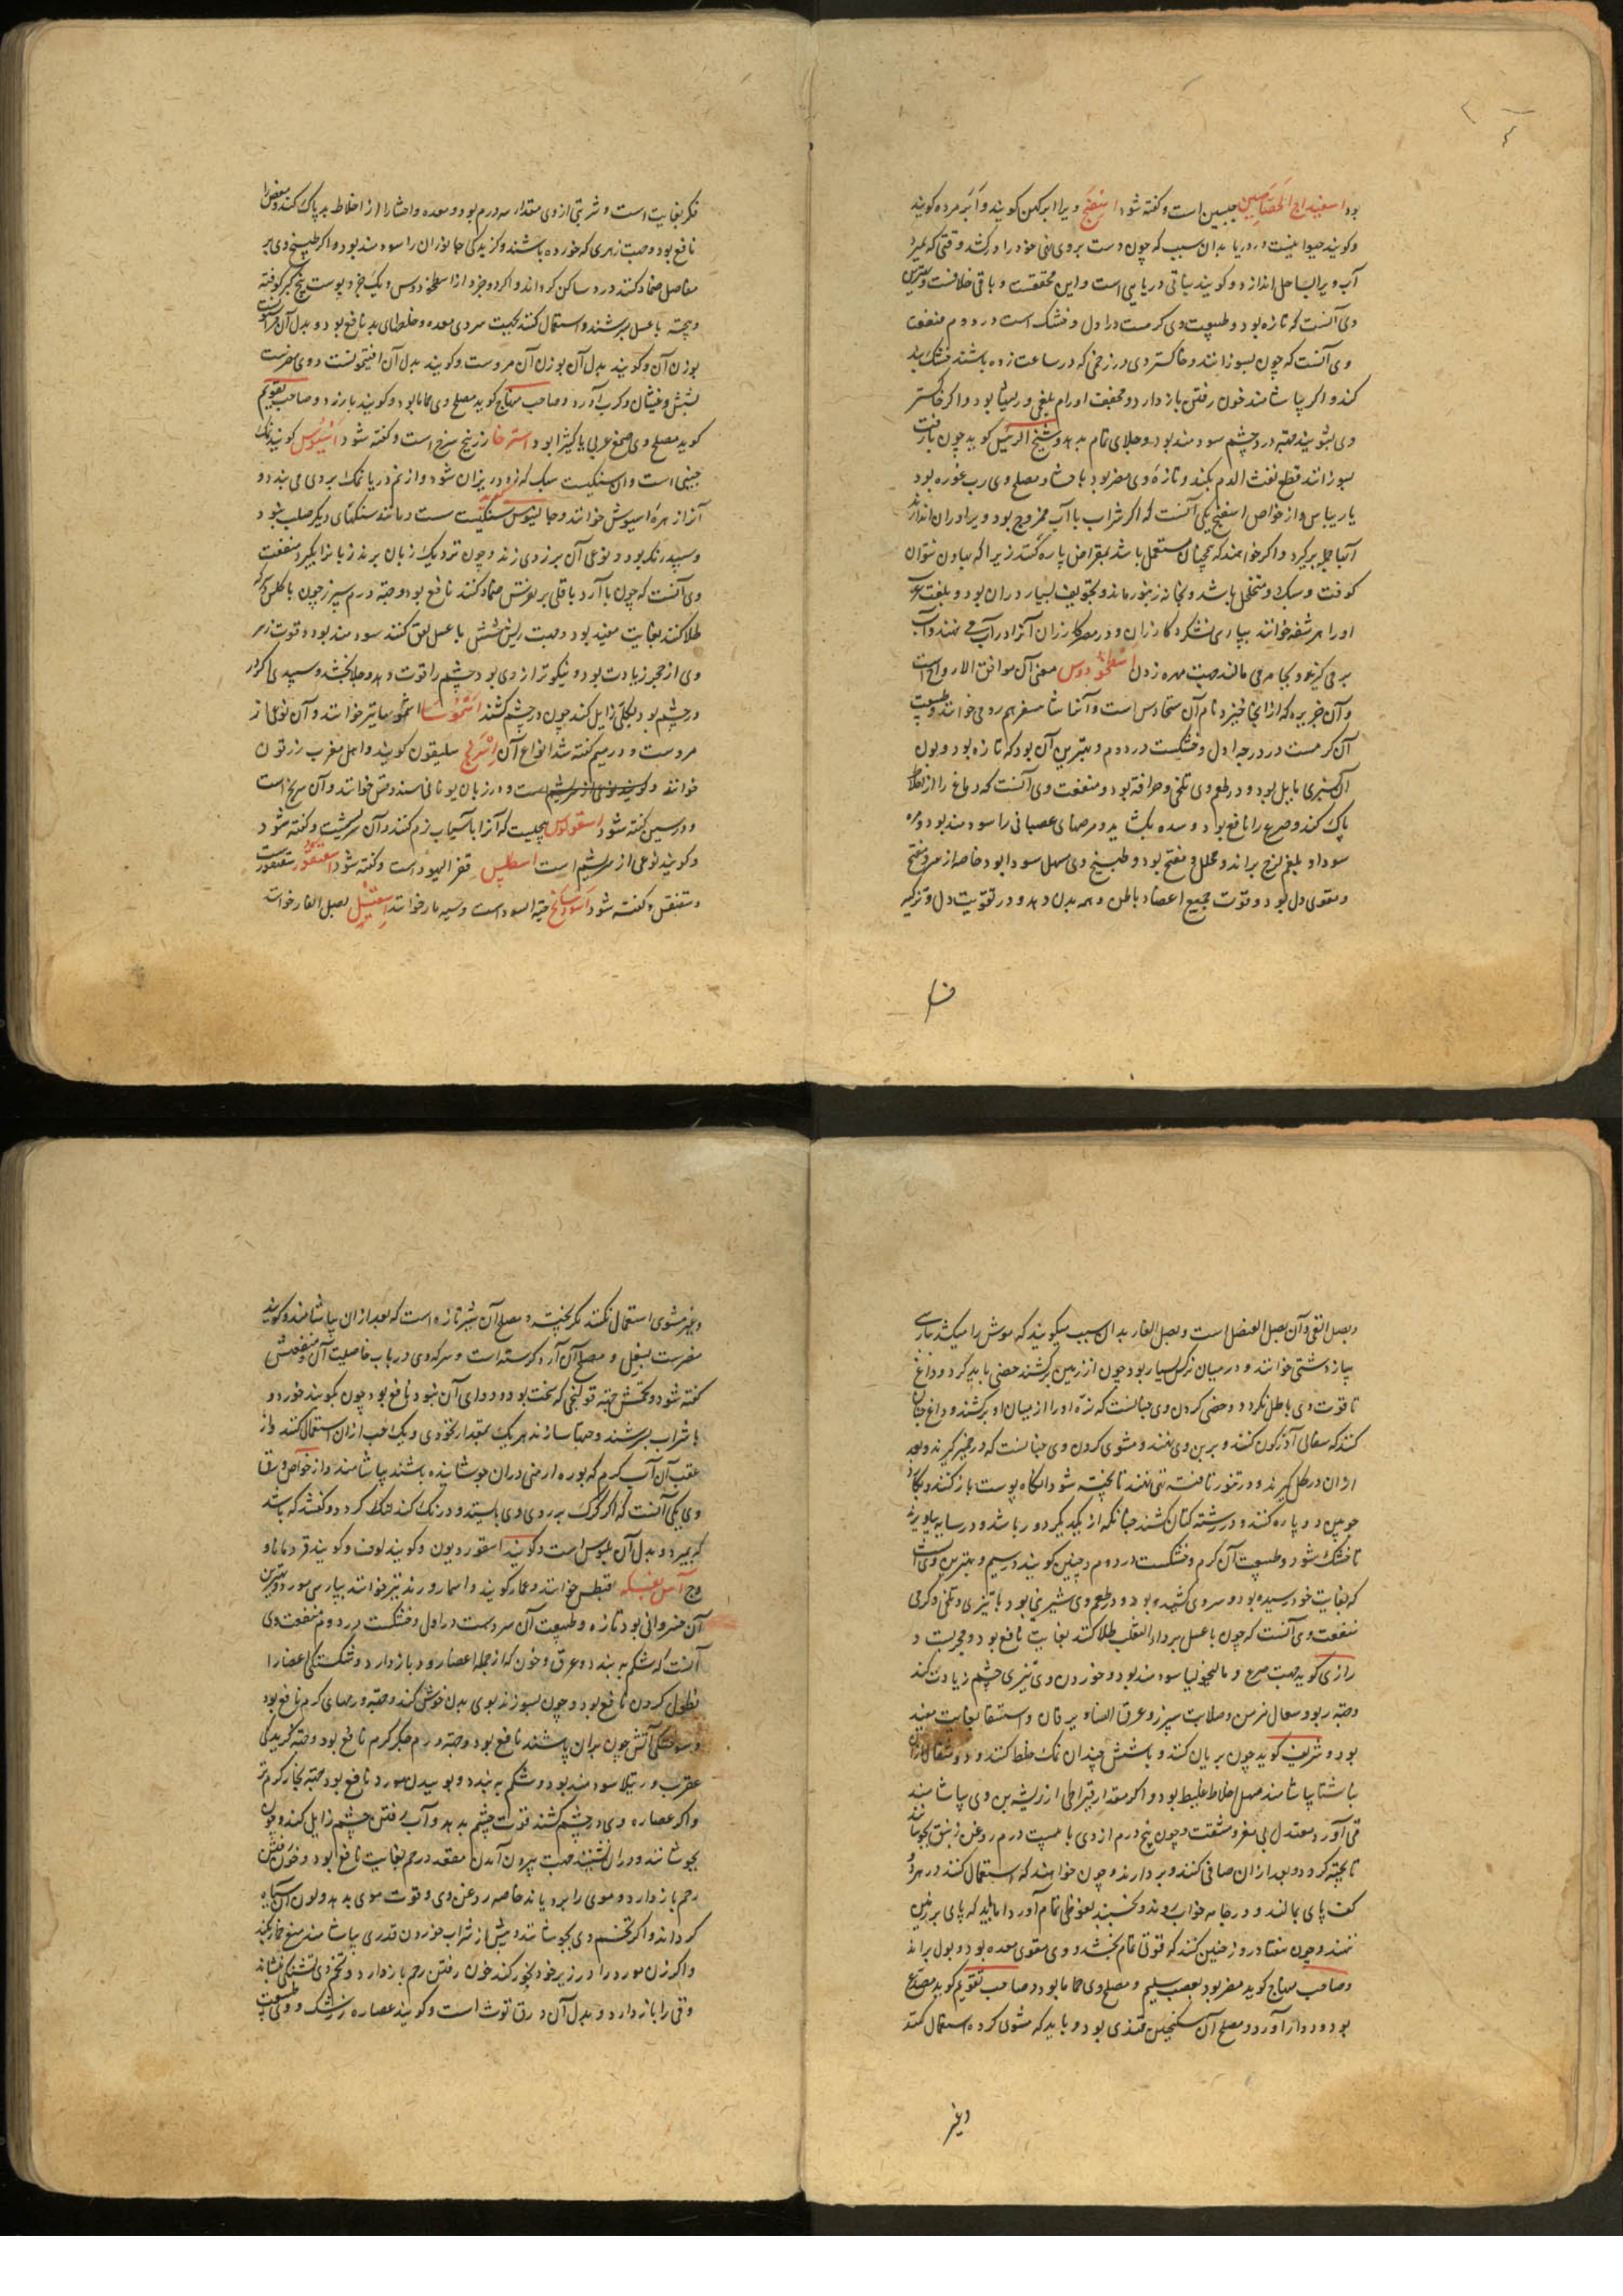 بود اسفیداج الجصاصین جبسین است و گفته شود اسفنج ویرا ابر کهن کویند و ابر مرده کویند
و کویند حیوانیست در دریا بدان سبب که چون دست بروی نهی خود را درکشد و وقتی که بمیرد
آب ویرا بساحل اندازد و کویند نباتی دریایی است و این محققست و باقی خلافست و بهترین
وی آنست که تازه بود و طبیعت وی کرمست در اول و خشک است در دوم منفعت
وی آنست که چون بسوزانند و خاکستر وی در زخمی که در ساعت زده باشند خشک بند
کند و اکر بیاشامند خون رفتن باز دارد و مجفف اورام بلغمی و ریشها بود و اکر خاکستر
وی بشویند جهة درد چشم سودمند بود و جلای تمام بدهد و شیخ الرئیس کوید چون با زفت
بسوزانند قطع نفث الدم بکند و تازه وی مضر بود باحشا و مصلح وی رب غوره بود
یا ریباس و از خواص اسفنج یکی آنست که اکر شراب با آب ممزوج بود ویرا در آن اندازند
آب بجمله برکیرد و اکر خواهند که همچنان مستعمل باشد بمقراض پاره کنند زیرا که بهاون نتوان
کوفت و سبک و متخلخل باشد و بخانه زنبور ماند و تجویف بسیار در آن بود و بلغت
او را هرشفه خوانند بپارسی نشکرد کازران و در مصر کازران آنرا در آب می نهند و آب
برمی کیرد و بجامه می مالند جهت مهره زدن اسطوخودوس معنی آن موافق الارواح است
و آن جزیره که از آنجا خیزد نام آن ستخادس است و آنتا شا مسفرهم رومی خوانند و طبیعت
آن کرمست در درجه اول و خشکست در دوم و بهترین آن بود که تازه بود و بوی
آن بسبزی مایل بود و در طعم وی تلخی و حرافة بود و منفعت وی آنست که دماغ را از اخلاط
پاک کند و صرع را نافع بود و سده بکشاید و مرضهای عصبانی را سودمند بود و مره
سودا و بلغم لزج براند و محلل و مفتح بود و طبیخ وی مسهل سودا بود خاصه از سر و مفتح
و مقوی دل بود و قوت جمیع اعضاء باطن و همه بدن دهد و در تقویت دل و تزکیه
فکر
فکر بغایت است و شربتی ازوی مقدار سه درم بود و معده و احشا را از اخلاط بد پاک کند و مغص را
نافع بود و جهت زهری که خورده باشند و کزیدگی جانوران را سودمند بود و اکر طبیخ وی بر
مفاصل ضماد کنند درد ساکن کرداند و اکر دو جزو از اسطوخودوس و یک جزو پوست بیخ کبر کوفته
و بیخته با عسل بسرشند و استعمال کنند بجهت سردی معده و خلطهای بد نافع بود و بدل آن فراسیون
بوزن آن و کویند بدل آن بوزن آن مروست و کویند بدل آن افتیمونست و وی مضرست
بشش و غثیان و کرب آورد و صاحب منهاج کوید مصلح وی حماما بود و کویند بارزد و صاحب تقویم
کوید مصلح وی صمغ عربی یا کثیرا بود استرخا زرنیخ سرخ است و گفته شود اسیوس کویند نمک
چینی است و آن سنکیست سبک که زود ریزان شود و از نم دریا نمک بروی می بندد و
آنرا زهره اسیوش خوانند و جالینوس سنکیست سست و مانند سنکهای دیکر صلب نبود
و سپید رنک بود و نوعی آن بزردی زند و چون نزدیک زبان برند زبانرا بکیرد منفعت
وی آنست که چون با آرد باقلی بر نقرس ضماد کنند نافع بود و جهة ورم سپرز چون با کلس و سرکه
طلا کنند بغایت مفید بود و جهت ریش شش با عسل لعق کنند سودمند بود و قوت زهر
وی از حجر زیادت بود و نیکوتر از وی بود چشم را قوت دهد و جلا بخشد و سپیدی اکر در
در چشم بود بکلی زایل کند چون در چشم کشند اشموسا اشموسا نیز خوانند و آن نوعی از
مروست و در میم گفته شد انواع آن اشرنج سلیقون کویند و اهل مغرب زرقون
خوانند و کویند نوعی از سریشم است و در زبان یونانی سندوقس خوانند و آن سرنج است
و در سین گفته شود اسقولوس بیخیست که آنرا بآسیاب نرم کنند و آن سریشست و گفته شود
و کویند نوعی از سریشم است اسطلس قفر الیهود است و گفته شود اسقنقور سقنقور است
و سقنقس و گفته شود اسود سالخ حیة السود است و سیه مار خوانند اسقیل بصل الفار خوانند
و بصل القی و آن بصل العنصل است و بصل الفار بدان سبب میکویند که موش را میکشد بپارسی
پیاز دشتی خوانند و در میان نرکس بسیار بود چون از زمین برکشند حصی باید کرد و داغ
تا قوت وی باطل نکردد و خصی کردن وی چنانست که نره او را از میان او برکشند و داغ چنان
کنند که سفالی آذرکون کنند و بر بن وی نهند و مشوی کردن وی چنانست که در خمیر کیرند و بعد
از آن در کل کیرند و در تنور تافته نهند تا پخته شود آنگاه پوست باز کنند و بکارد
چوبین دو پاره کنند و در رشته کتان کشند چنانکه از یکدیگر دور باشد و در سایه بیاویزند
تا خشک شود و طبیعت آن کرم و خشکست در دوم و چنین کویند در سیم و بهترین وی آنست
که بغایت خود رسیده بود و سر وی کشیده بود و در طعم وی شیرینی بود با تیزی و تلخی و کرمی
منفعت وی آنست که چون با عسل بر داء الثعلب طلا کنند بغایت نافع بود و مجربست و
رازی کوید جهت صرع و مالیخولیا سودمند بود و خوردن وی تیزی چشم زیادت کند
و جهة ربو و سعال مزمن و صلابت سپرز و عرق النسا و یرقان و استسقا بغایت مفید
بود و شریف کوید چون بریان کنند و با شش چندان نمک خلط کنند و دو مثقال از آن
ناشتا بیاشامند مسهل اخلاط غلیظ بود و اکر مقدار قیراطی از ریشه بن وی بیاشامند
قی آورد معتدل بی مغص و مشقت و چون پنج درم از وی با بیست درم روغن زنبق بجوشانند
تا پخته کردد و بعد از آن صافی کنند و بردارند و چون خواهند که استعمال کنند در هر دو
کف پای بمالند و در جامه خواب روند و بخسبند نعوظی تمام آورد اما باید که پای بر زمین
ننهند و چون هفتاد روز چنین کنند که قوتی تمام بخشد و وی مقوی معده بود و بول براند
و صاحب منهاج کوید مضر بود بعصب سلیم و مصلح وی حماما بود و صاحب تقویم کوید مصدع
بود و دوار آورد و مصلح آن سکنجبین قندی بود و باید که مشوی کرده استعمال کنند
وغیر
وغیر مشوی استعمال نکنند مکر بپخته و مصلح آن شیر تازه است که بعد از آن بیاشامند و کویند
مضرست بسفل و مصلح آن آرد کرسنه است و سرکه وی در باب خاصیت آن و منفعتش
گفته شود و تخمش جهة قولنجی که سخت بود و دوای آن نبود نافع بود چون بکوبند خرد و
با شراب بسرشند و حبها سازند هر یک بمقدار نخودی و یک حب از آن استعمال کنند و از
عقب آن آب کرم که بوره ارمنی در آن جوشانیده باشند بیاشامند و از خواص ورق
وی یکی آنست که اگر کرک بر روی وی بایستد و درنک کند لنک کردد و گفتند که باشد
که بمیرد و بدل آن بلبوس است و کویند اسقوردیون و کویند لوف و کویند قردمانا و
وج آس بقبطی خوانند و عمار کویند و اسمار و رند نیز خوانند بپارسی مورد و بهترین
آن خسروانی بود تازه و طبیعت آن سردست در اول و خشکست در دوم منفعت وی
آنست که شکم ببندد و عرق و خون که از جمله اعضا رود باز دارد و شکستگی اعضا را
نطول کردن نافع بود و چون بسوزند بوی بدن خوش کند و جهة ورمهای کرم نافع بود
و سوختگی آتش چون بدان پاشند نافع بود و جهة ورم جگر کرم نافع بود و جهة گزیدگی
عقرب و رتیلا سودمند بود و شکم ببندد و بوییدن مورد نافع بود جهة بخار کرم تر
و اکر عصاره وی در چشم کشند قوت چشم بدهد و آب رفتن چشم زایل کند و چون
بجوشانند و در آن نشینند جهت بیرون آمدن مقعد و رحم بغایت نافع بود و خون رفتن
رحم باز دارد و موی را برویاند خاصه روغن وی و قوت موی بدهد و لون آن سیاه
کرداند و اکر تخم وی بجوشانند و پیش از شراب خوردن قدری بیاشامند منع خمار بکند
و اکر زن مورد را در زیر خود بخور کند خون رفتن رحم باز دارد و تخم وی تشنگی بنشاند
و قی را باز دارد و بدل آن ورق توث است و کویند عصاره زرشک و طبیعت